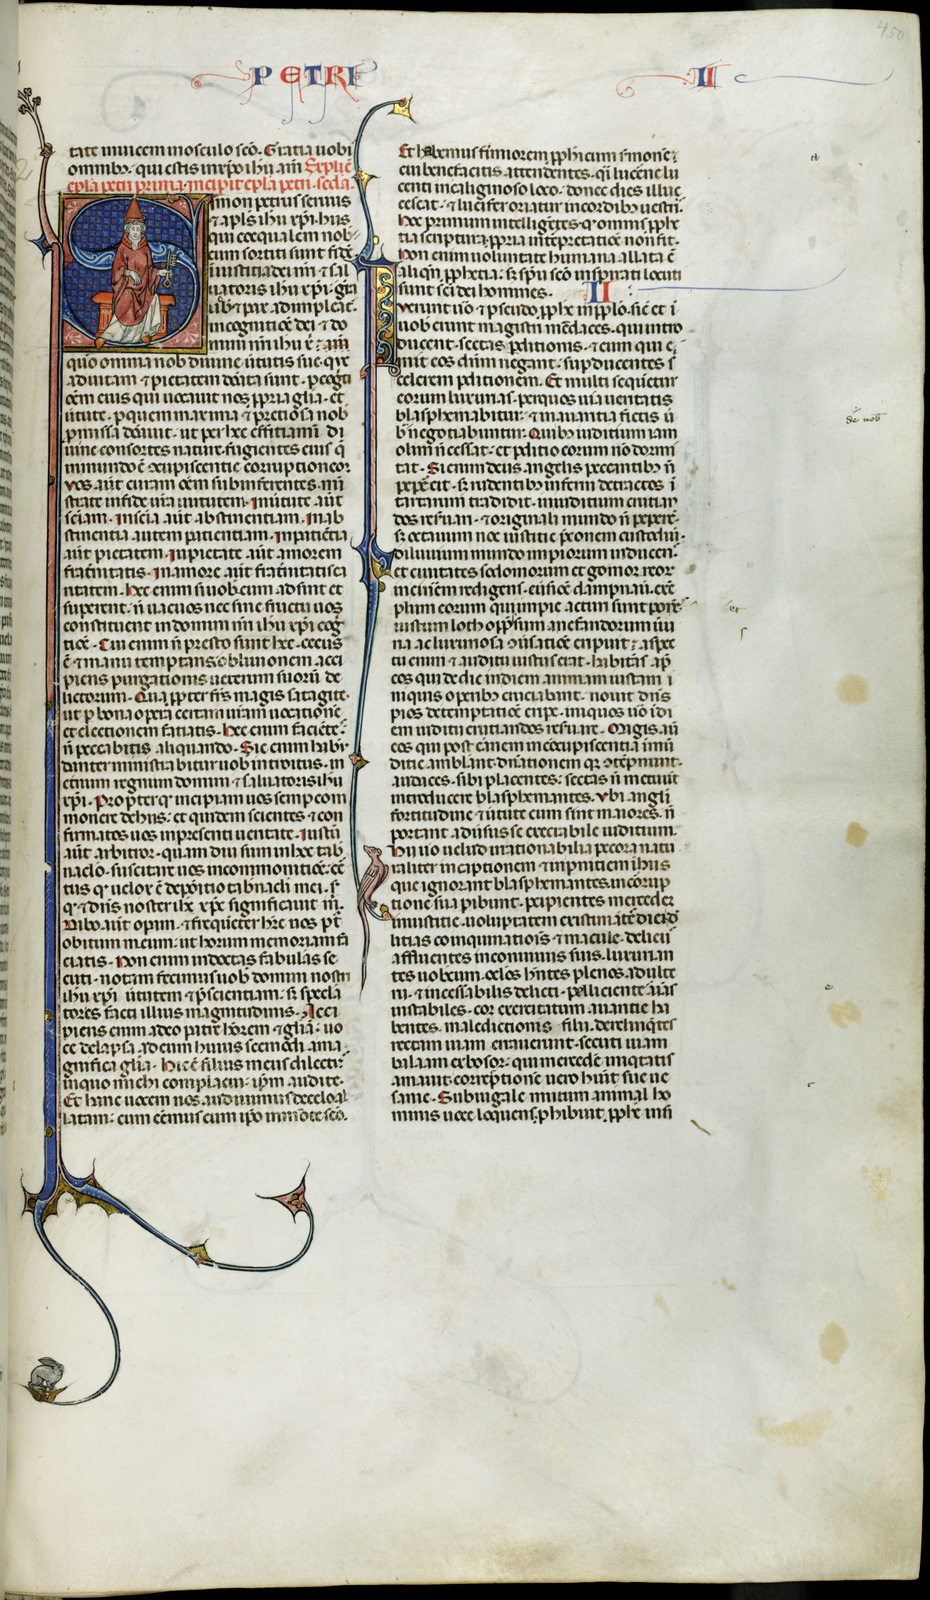 450
PETRI II
tate inuicem inosculo sc̄o. Gratia uobi
omnibꝫ. qui estis inxp̄o ih̄u am̄ Explic̄
ep̄la petri prima. incipit ep̄la petri. sc̄da.
Simon petrus seruus
⁊ apl̄s ih̄u xp̄i. hiis
qui coequalem nob̾
cum sortiti sunt fidē
in iusticia dei n̄ri ⁊ sal
uatoris ih̄u xp̄i. gr̄a
uob̾ ⁊ pax adimpleat̾.
incognitiōe dei ⁊ do
mini n̄ri ih̄u
quō omnia nob̾ diuine uirtutis sue. que
aduitam ⁊ pietatem donata sunt. p cogniti
onem eius qui uocauit nos ppria gl̄ia. et
uirtute. pquem maxima ⁊ preciosa nob̾
pmissa donauit. ut per hec efficiamini di
uine consortes nature. fugientes eius q̄
inmundo ē ɔcupiscentie corruptionem.
vos aūt curam om̄em subinferentes. mi
nistrate infide ur̄a uirtutem. Inuirtute aūt
sciam. inscia aūt abstinentiam. Inab
stinentia autem patientiam. Inpaciētia
aūt pietatem. Inpietate aūt amorem
frat̾nitatis. Inamore aūt frat̾nitatis ca
ritatem. Hec enim si uob̾cum adsint et
superent. n̄ uacuos nec sine fructu uos
constituent indomini n̄ri ih̄u xp̄i cog
nitiōe. Cui enim n̄ presto sunt hec. cecus
ē ⁊ manu temptans. obliuionem acci
piens purgationis ueterum suorū de
lictorum. Qua ppter fr̄s magis satagite.
ut p bona opera certam ur̄am uocationē
et electionem faciatis. Hec enim faciētes
n̄ peccabitis aliquando. Sic enim habū
danter ministrabitur uob̾ introitus. in
et̾num regnum domini ⁊ saluatoris ih̄u
xp̄i. Propter q̾ incipiam uos semp com
monere dehiis. et quidem scientes ⁊ con
firmatos uos inpresenti ueritate. Iustū
aūt arbitror. quam diu sum inhoc tab̾
naclo. suscitare uos incommonitiōe. c̾
tus q̾ uelox ē depositio tabnacli mei. s̾
q̾ ⁊ dn̄s noster ih̄c xp̄c significauit m̄.
Dabo aūt opam. ⁊ frequenter h̾re uos p̾t
obitum meum. ut horum memoriam fa
ciatis. Non enim indoctas fabulas se
cuti. notam fecimus uob̾ domini nostri
ih̄u xp̄i uirtutem ⁊ p̄scientiam. s̾ specta
tores facti illius magnitudinis. Acci
piens enim adeo patre honorem ⁊ gl̄iā. uo
ce delapsa ad eum huius scemodi ama
gnifica gl̄ia. Hic ē filius meus dilectꝰ
inquo michi complacui. ip̄m audite.
Et hanc uocem nos audiuimus decelo al
latam. cum essemus cum ip̄o inmonte sc̄o.
Et habemus firmiorem pph̾icum s̾monē.
cui benefacitis attendentes. q̄i lucerne lu
centi incaliginoso loco. donec dies illuc
escat. ⁊ lucifer oriatur incordibꝫ uestris.
hoc primum intelligētes. q̾ omnis pph̾e
tia scripture. ppria int̾pretatiōe non fit.
Non enim uoluntate humana allata ē
aliqn̄ pph̾etia. s̾ sp̄u sc̄o inspirati locuti
sunt sc̄i dei homines. II
Fuerunt uō ⁊ pseudo pph̾e inpp̄lo. sic̄ et ī
uob̾ erunt magistri mēdaces. qui intro
ducent sectas pditionis. ⁊ eum qui e
mit eos dn̄m negant. supducentes s̾
celerem pditionem. Et multi sequētur
eorum luxurias. perquos uia ueritatis
blasphemabitur. ⁊ inauaritia fictis ū
b̾ negotiabuntur. Quibꝫ iuditium iam
olim n̄ cessat. et pditio eorum nō dormi
tat. Si enim deus angelis peccantibꝫ n̄
pepercit. s̾ rudentibꝫ inferni detractos ī
tartarum tradidit. iniuditium cruciā
dos res̾uari. ⁊ originali mundo n̄ pepercit.
s̾ octauum noe iusticie p̄conem custodiuit.
diluuium mundo impiorum inducens̾.
et ciuitates sodomorum et gomor reor̄
incinerem redigens. eu̾sioē dampnauit. exē
plum eorum qui impie acturi sunt ponēs.
iustum loth opp̄ssum anefandorum iniu
ria ac luxuriosa ɔu̾satiōe eripuit. aspec
tu enim ⁊ auditu iustus erat. habitās ap̾
eos qui dedie indiem animam iustam i
niquis operibꝫ cruciabant. nouit dn̄s
pios detemptatiōe erip̾e. iniquos uō i di
em iuditii cruciandos res̾uare. Magis aū
eos qui post carnem inɔcupiscentia inmū
ditie amblant. dn̄ationem q̄ ɔtēpnunt.
audaces. sibi placentes. sectas n̄ metuūt
introducere blasphemantes. vbi angl̄i
fortitudine ⁊ uirtute cum sint maiores. n̄
portant adu̾sus se execrabile iuditium.
Hii uō uelud irrationabilia pecora natu
raliter incaptionem ⁊ inpniciem ihiis
que ignorant blasphemantes. incorrup
tione sua pibunt. pcipientes mercedem
iniustitie. uoluptatem existimātes diei de
litias. coinquinatiōis ⁊ macule. deliciis
affluentes inconuiuiis suis luxurian
tes uobcum. oculos h̄ntes plenos adulte
rii. ⁊ incessabilis delicti. pellicientes aīas
instabiles. cor exercitatum auaritie ha
bentes. maledictionis filii. derelinquētes
rectam uiam errauerunt. secuti uiam
balaam exbosor. qui mercedē iniq̄tatis
amauit. correptione uero huīt sue ue
sanie. Subiugale mutum animal ho
minis uoce loquens. phibuit. pph̾e insi
et
de nob̾
et